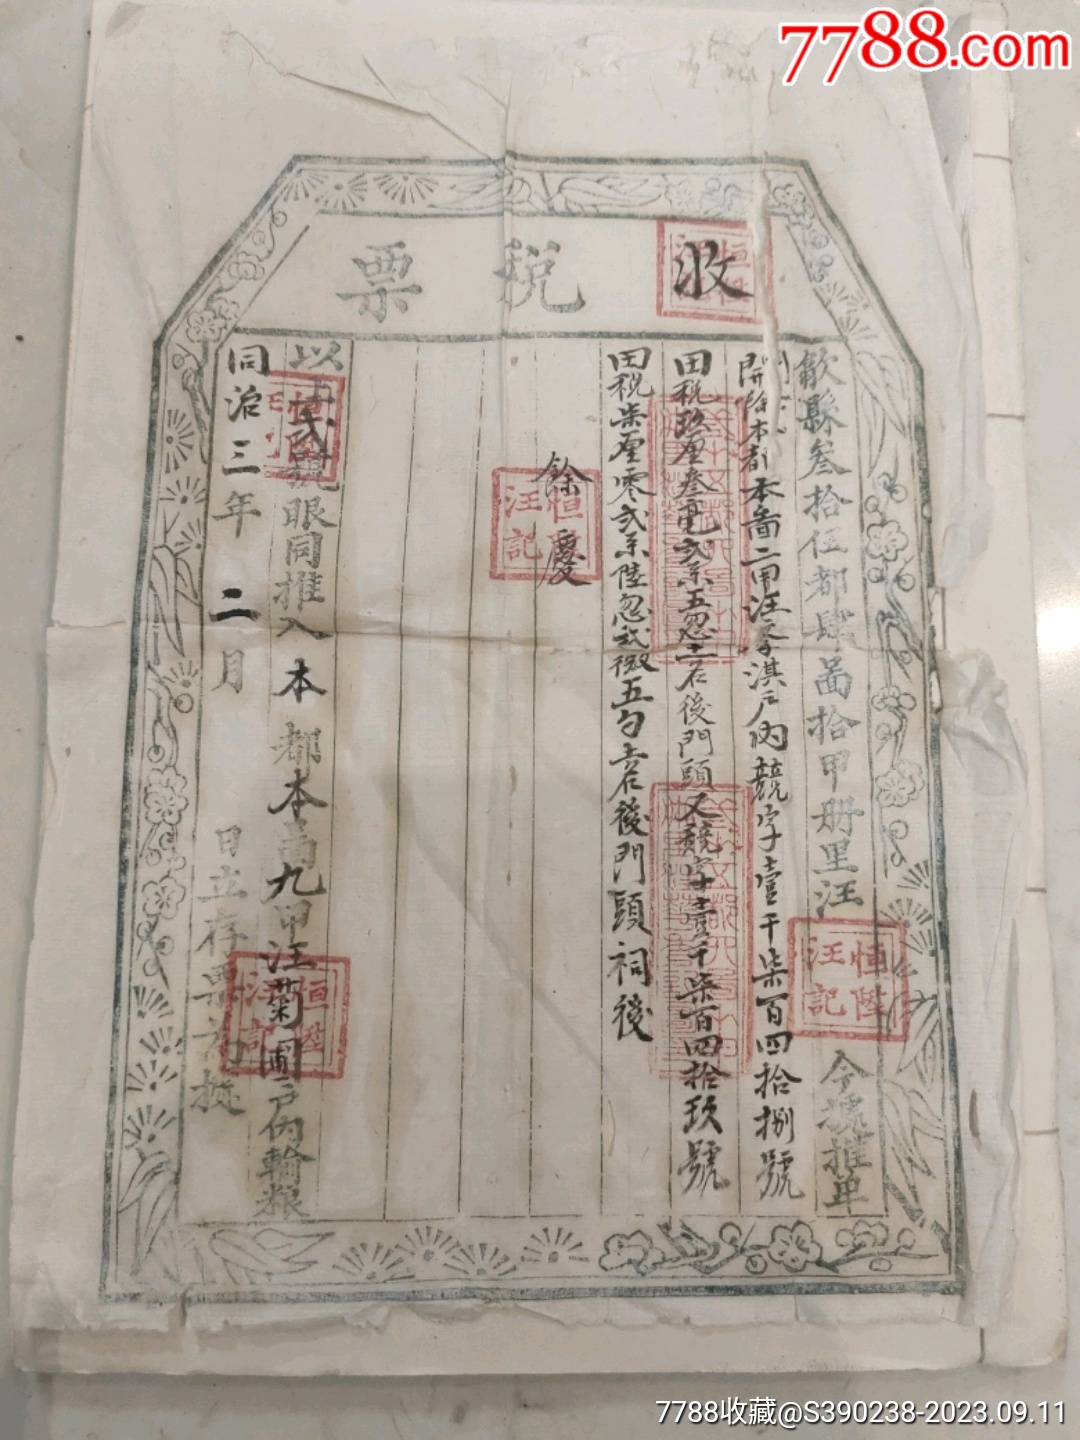 7788.com
收稅票
歙縣叁拾伍都肆啚拾甲册里汪 今據推单
開除本都本啚二甲汪 淇戶内競字壹千柒百四拾捌號
田稅玖厘叁毫弍系五忽 土名後門頭又競字壹千柒百四拾玖號
田稅柒厘零弍系陸忽弍微五勺 土名後門頭祠後
餘慶
以上弍號眼同推入本都本啚九甲汪菊圃戶内輸粮
同治三年二月 日立存票
恒陞
汪記
7788收藏@S390238-2023.09.11